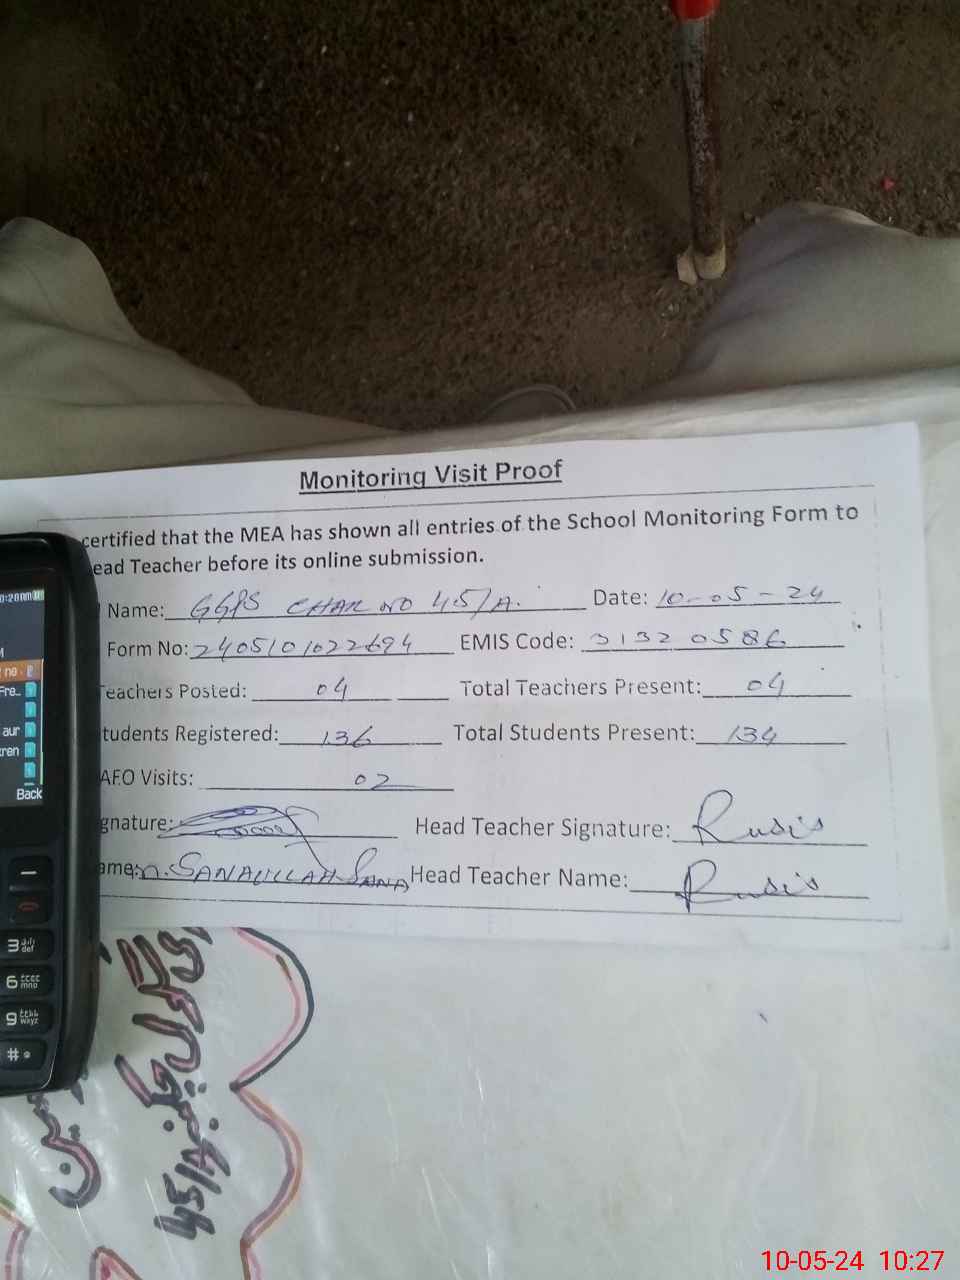 Monitoring Visit Proof
certified that the MEA has shown all entries of the School Monitoring Form to
ead Teacher before its online submission.
Name: GGPS CHAK NO 45/A. Date: 10-05-24
Form No: 2405101022694 EMIS Code: 31320586
Teachers Posted: 04 Total Teachers Present: 04
tudents Registered: 136 Total Students Present: 134
AEO Visits: 02
gnature: Head Teacher Signature:
ame: M. SANAULLAH SANA Head Teacher Name:
0:28
Fre..
aur
Back
3 def
6 mno
9 wxyz
#
10-05-24 10:27